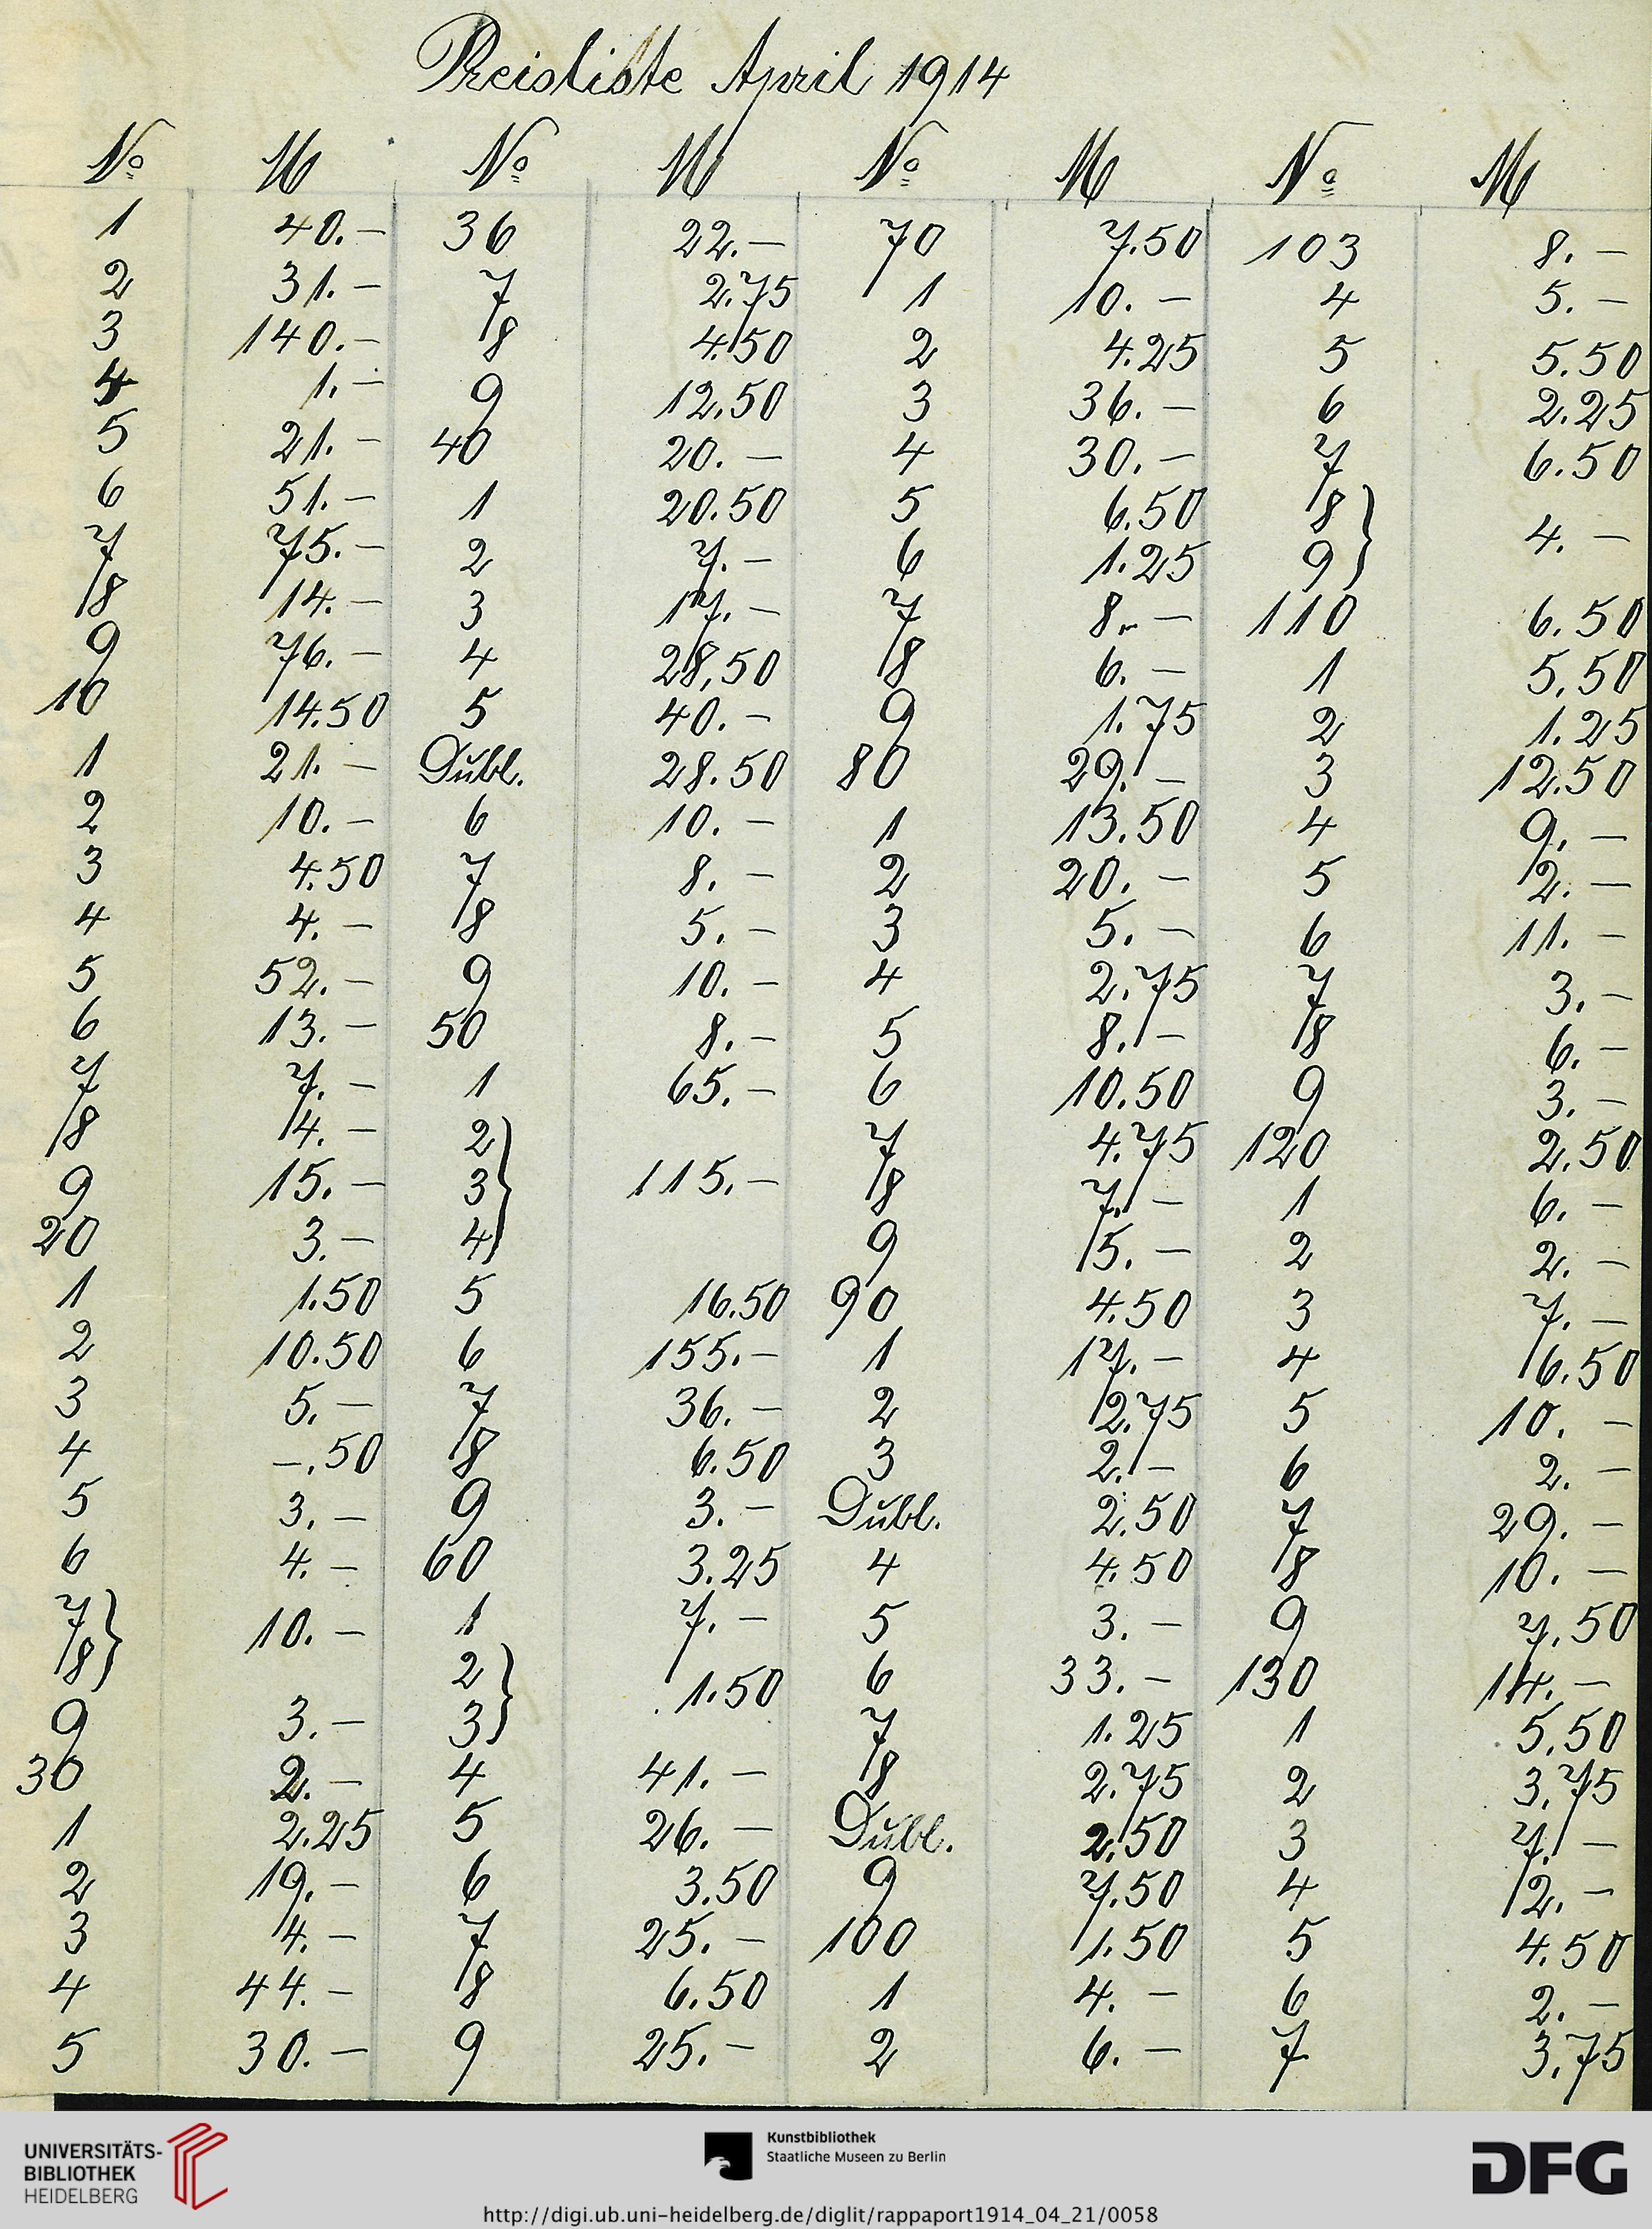 Preisliste April 1914
No M No M No M No M
1 40.– 36 22.– 70 7.50 103 8.–
2 31.– 7 2.75 1 10.– 4 5.–
3 140.– 8 4.50 2 4.25 5 5.50
4 1.– 9 12.50 3 36.– 6 2.25
5 21.– 40 20.– 4 30.– 7 6.50
6 51.– 1 20.50 5 6.50 8 }
7 75.– 2 7.– 6 1.25 9 } 4.–
8 14.– 3 17.– 7 8.– 110 6.50
9 76.– 4 28,50 8 6.– 1 5.50
10 14.50 5 40.– 9 1.75 2 1.25
1 21.– Dubl. 28.50 80 29.– 3 12.50
2 10.– 6 10.– 1 13.50 4 9.–
3 4.50 7 8.– 2 20.– 5 2.–
4 4.– 8 5.– 3 5.– 6 11.–
5 52.– 9 10.– 4 2.75 7 3.–
6 13.– 50 8.– 5 8.– 8 6.–
7 7.– 1 65.– 6 10.50 9 3.–
8 4.– 2 } 7 4.75 120 2.50
9 15.– 3 } 115.– 8 7.– 1 6.–
20 3.– 4 } 9 5.– 2 2.–
1 1.50 5 16.50 90 4.50 3 7.–
2 10.50 6 155.– 1 17.– 4 6.50
3 5.– 7 36.– 2 2.75 5 10.–
4 –.50 8 6.50 3 2.– 6 2.–
5 3.– 9 3.– Dubl. 2.50 7 29.–
6 4.– 60 3.25 4 4.50 8 10.–
7 } 10.– 1 7.– 5 3.– 9 7.50
8 } 2 } 1.50 6 33.– 130 14.–
9 3.– 3 } 7 1.25 1 5.50
30 2.– 4 41.– 8 2.75 2 3.75
1 2.25 5 26.– Dubl. 2.50 3 7.–
2 19.– 6 3.50 9 7.50 4 2.–
3 4.– 7 25.– 100 1.50 5 4.50
4 44.– 8 6.50 1 4.– 6 2.–
5 30.– 9 25.– 2 6.– 7 3.75
UNIVERSITÄTS-
BIBLIOTHEK
HEIDELBERG
Kunstbibliothek
Staatliche Museen zu Berlin
DFG
http://digi.ub.uni-heidelberg.de/diglit/rappaport1914_04_21/0058